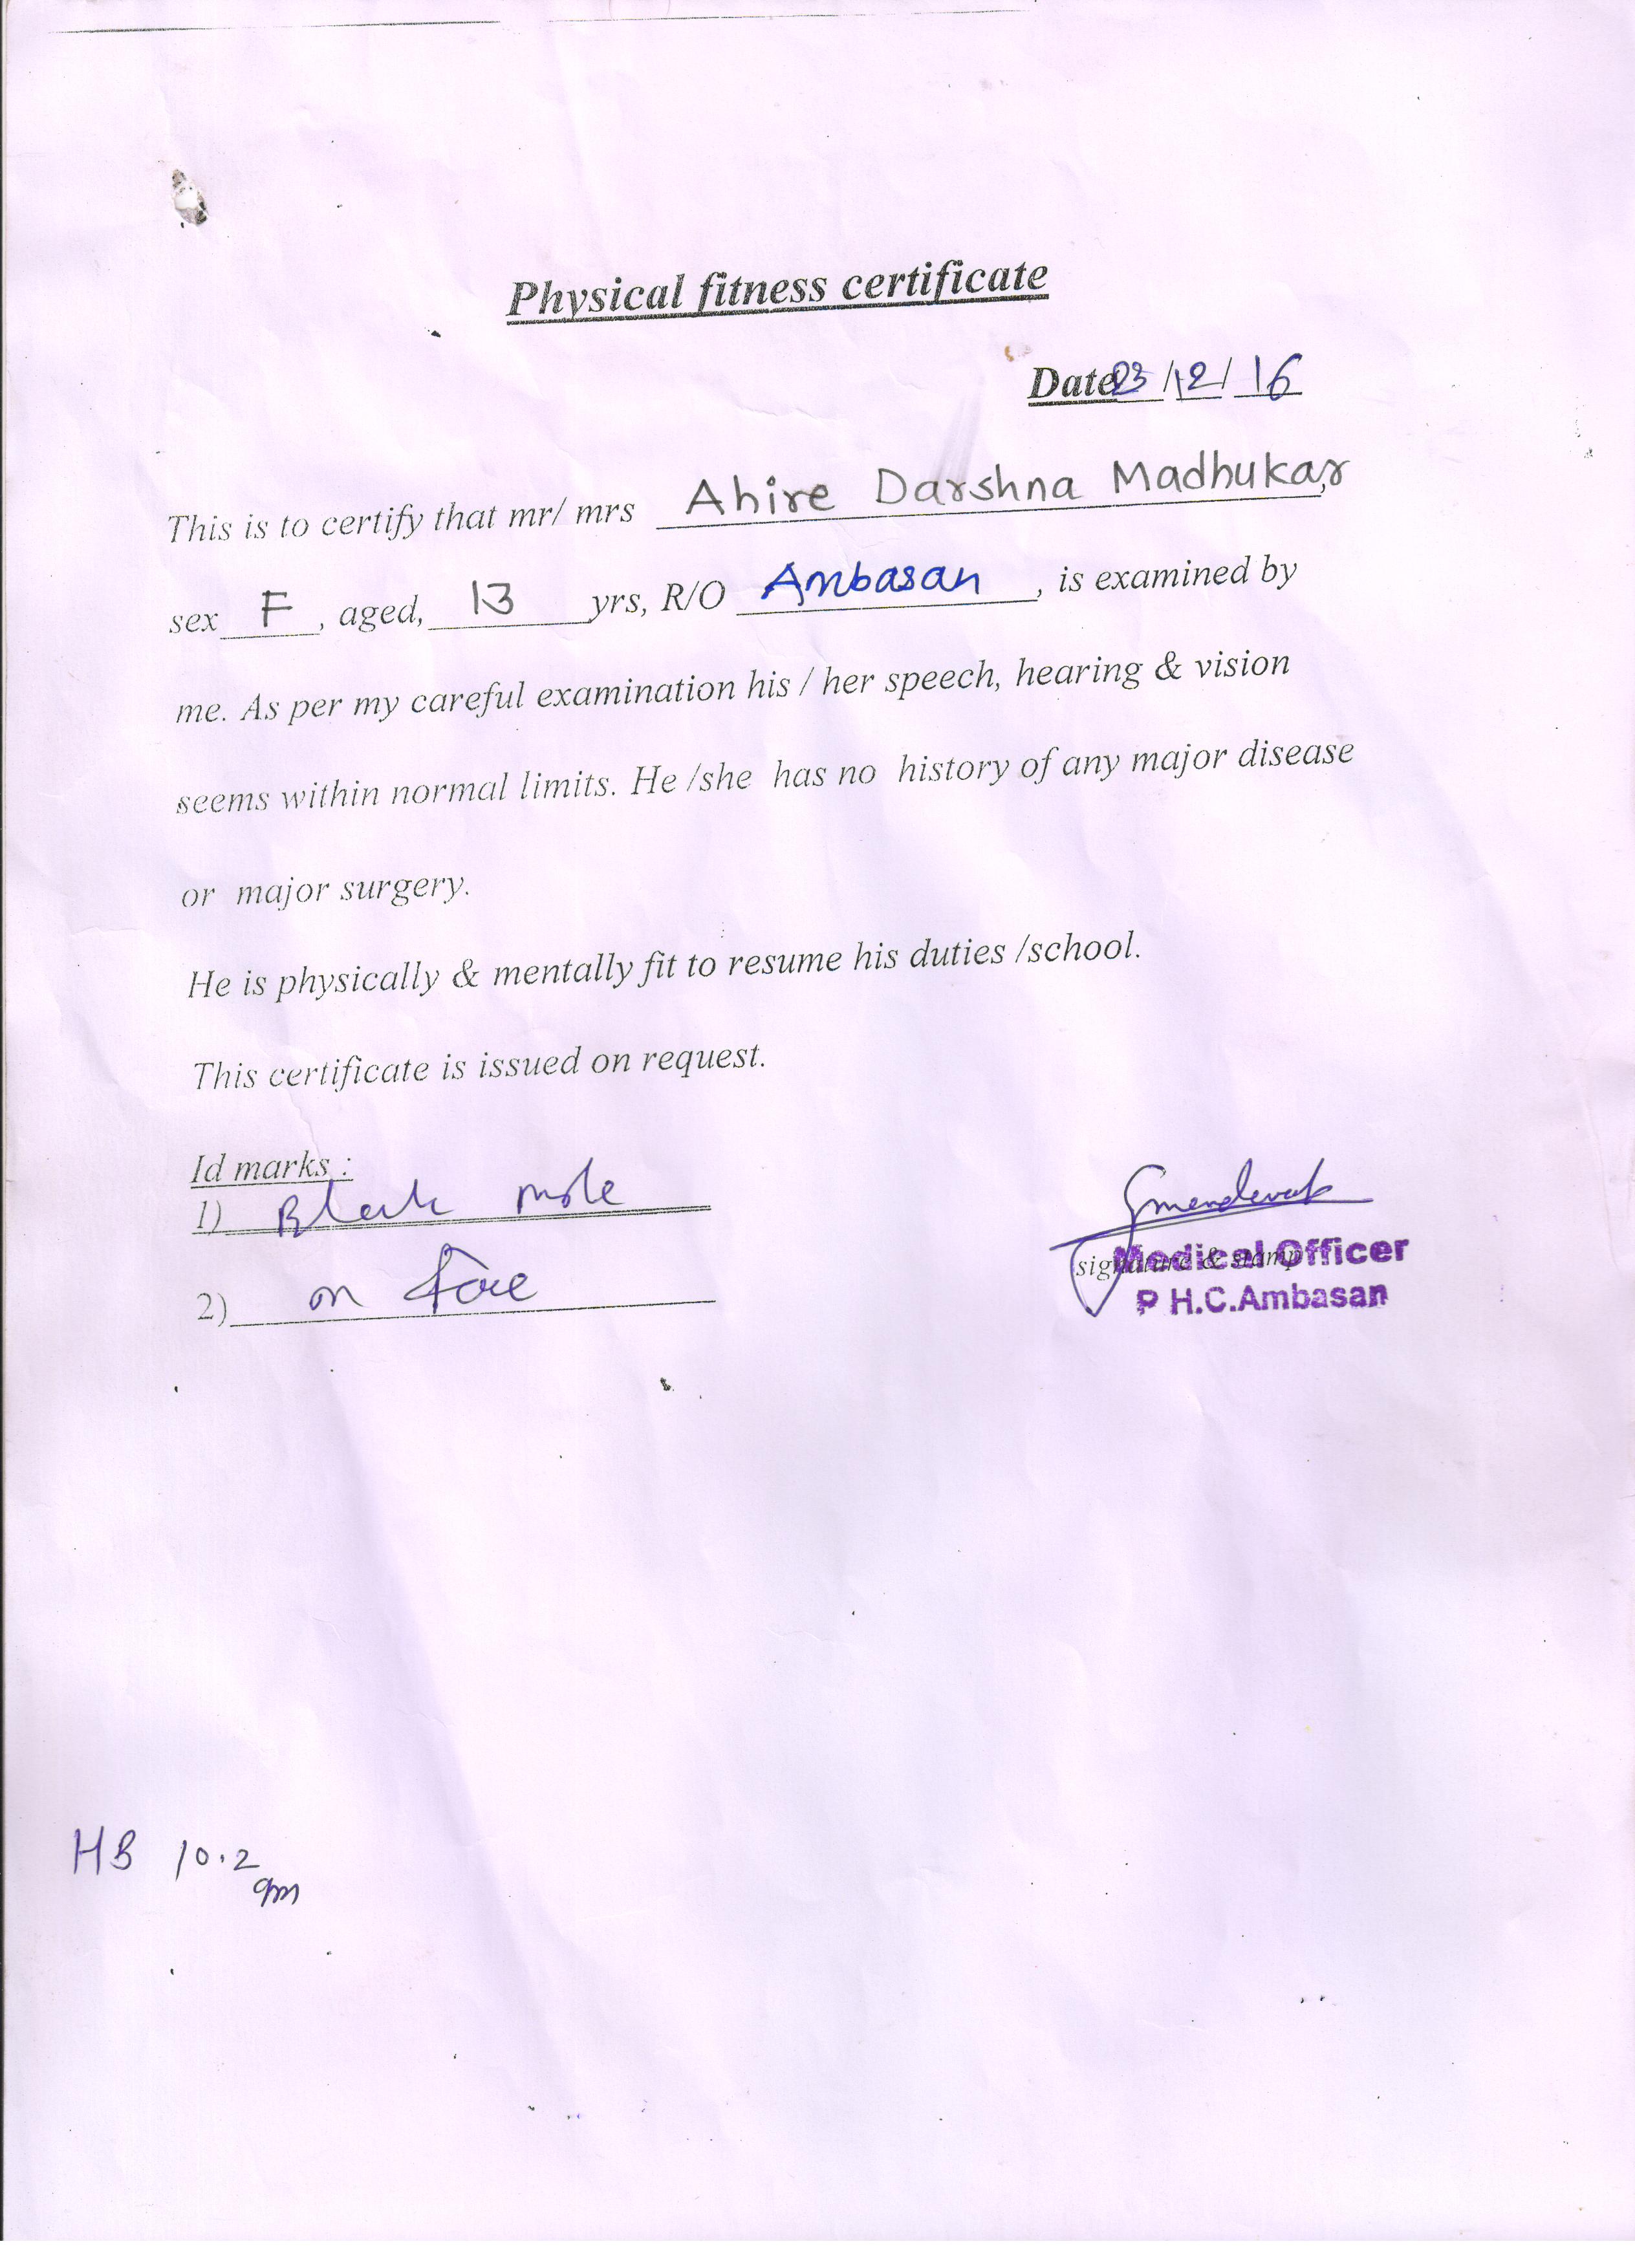 Physical fitness certificate
Date 23/12/16
This is to certify that mr/ mrs Ahire Darshna Madhukar,
sex F, aged, 13 yrs, R/O Ambasan, is examined by
me. As per my careful examination his / her speech, hearing & vision
seems within normal limits. He /she has no history of any major disease
or major surgery.
He is physically & mentally fit to resume his duties /school.
This certificate is issued on request.
Id marks :
1) Black mole
2) on face
signature & stamp
Medical Officer
P H.C.Ambasan
HB 10.2
gm